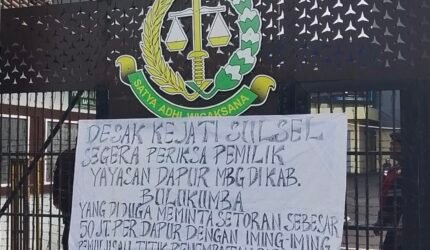 SATYA ADHI WICAKSANA
DESAK KEJATI SULSEL
SEGERA PERIKSA PEMILIK
YAYASAN DAPUR MBG DI KAB.
BULUKUMBA
YANG DI DUGA MEMINTA SETORAN SEBESAR
50 JT. PER DAPUR DENGAN IMING-IMING